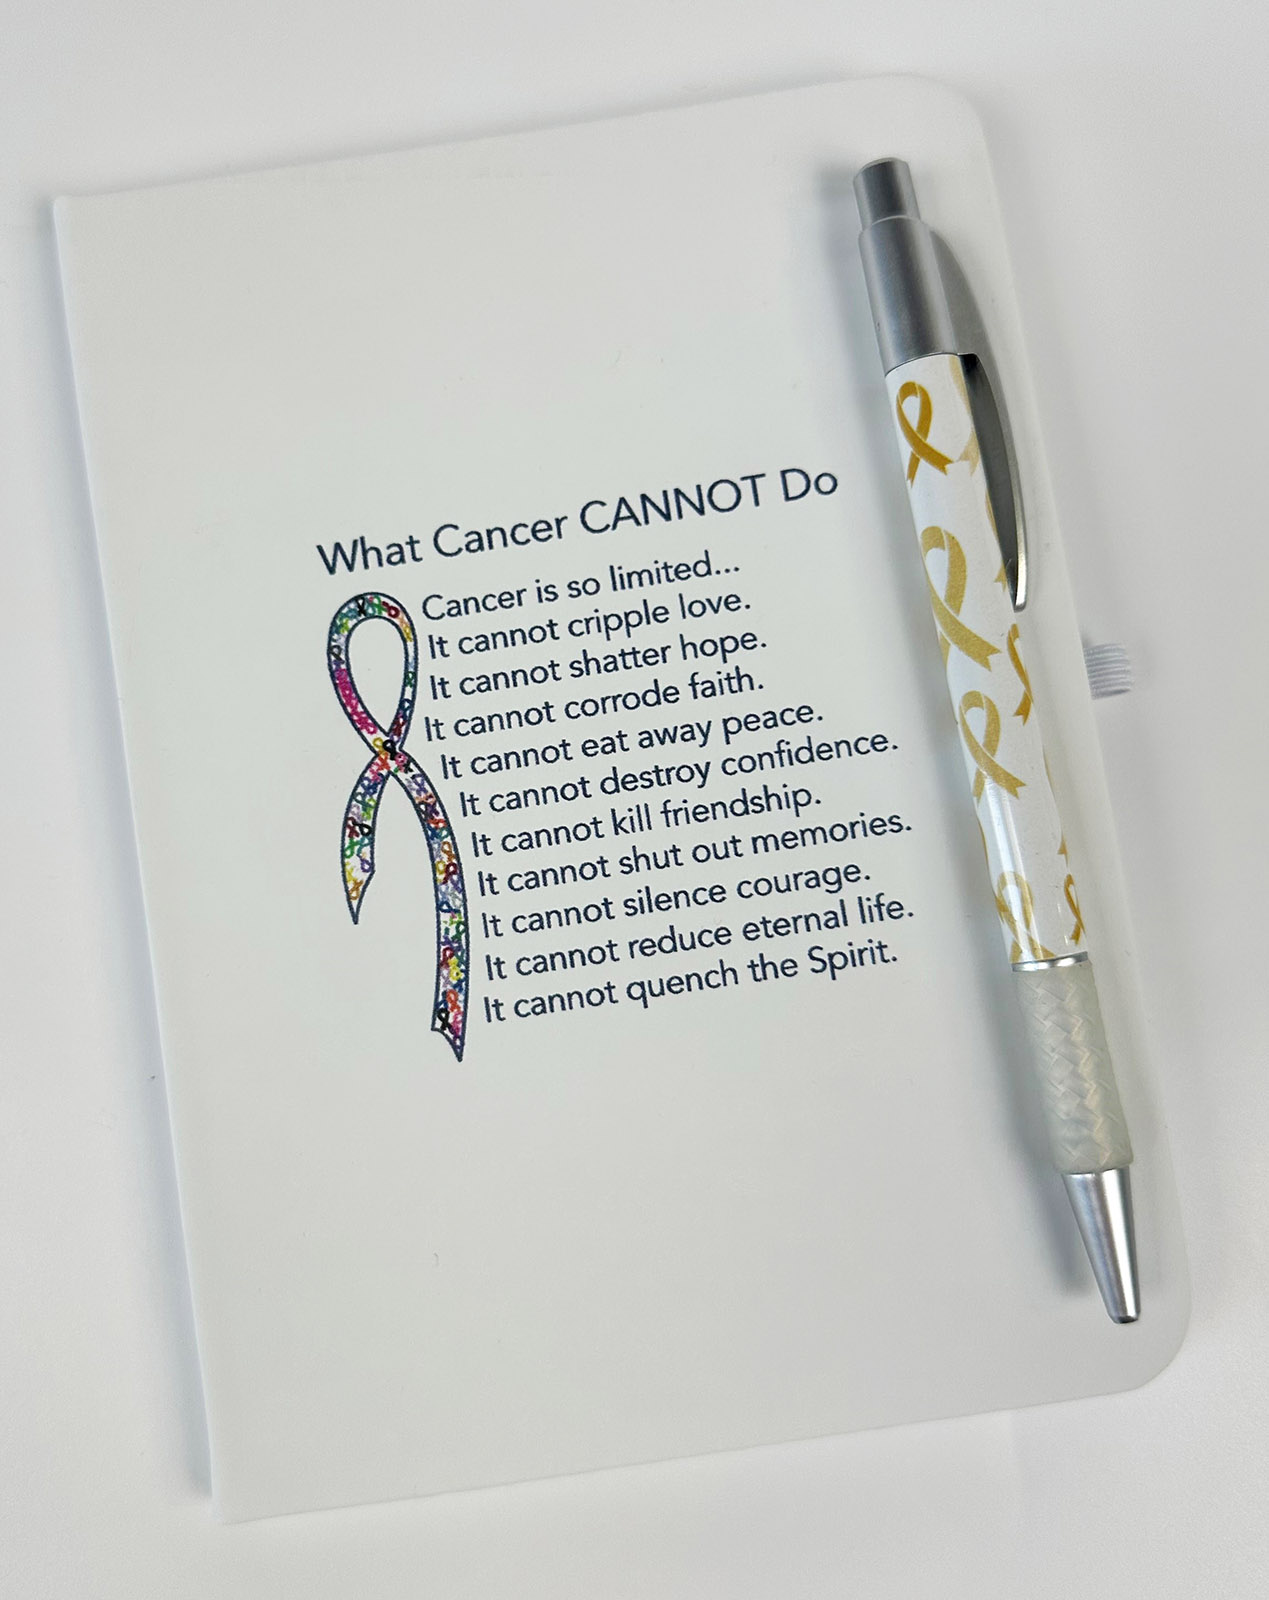 What Cancer CANNOT Do
Cancer is so limited...
It cannot cripple love.
It cannot shatter hope.
It cannot corrode faith.
It cannot eat away peace.
It cannot destroy confidence.
It cannot kill friendship.
It cannot shut out memories.
It cannot silence courage.
It cannot reduce eternal life.
It cannot quench the Spirit.